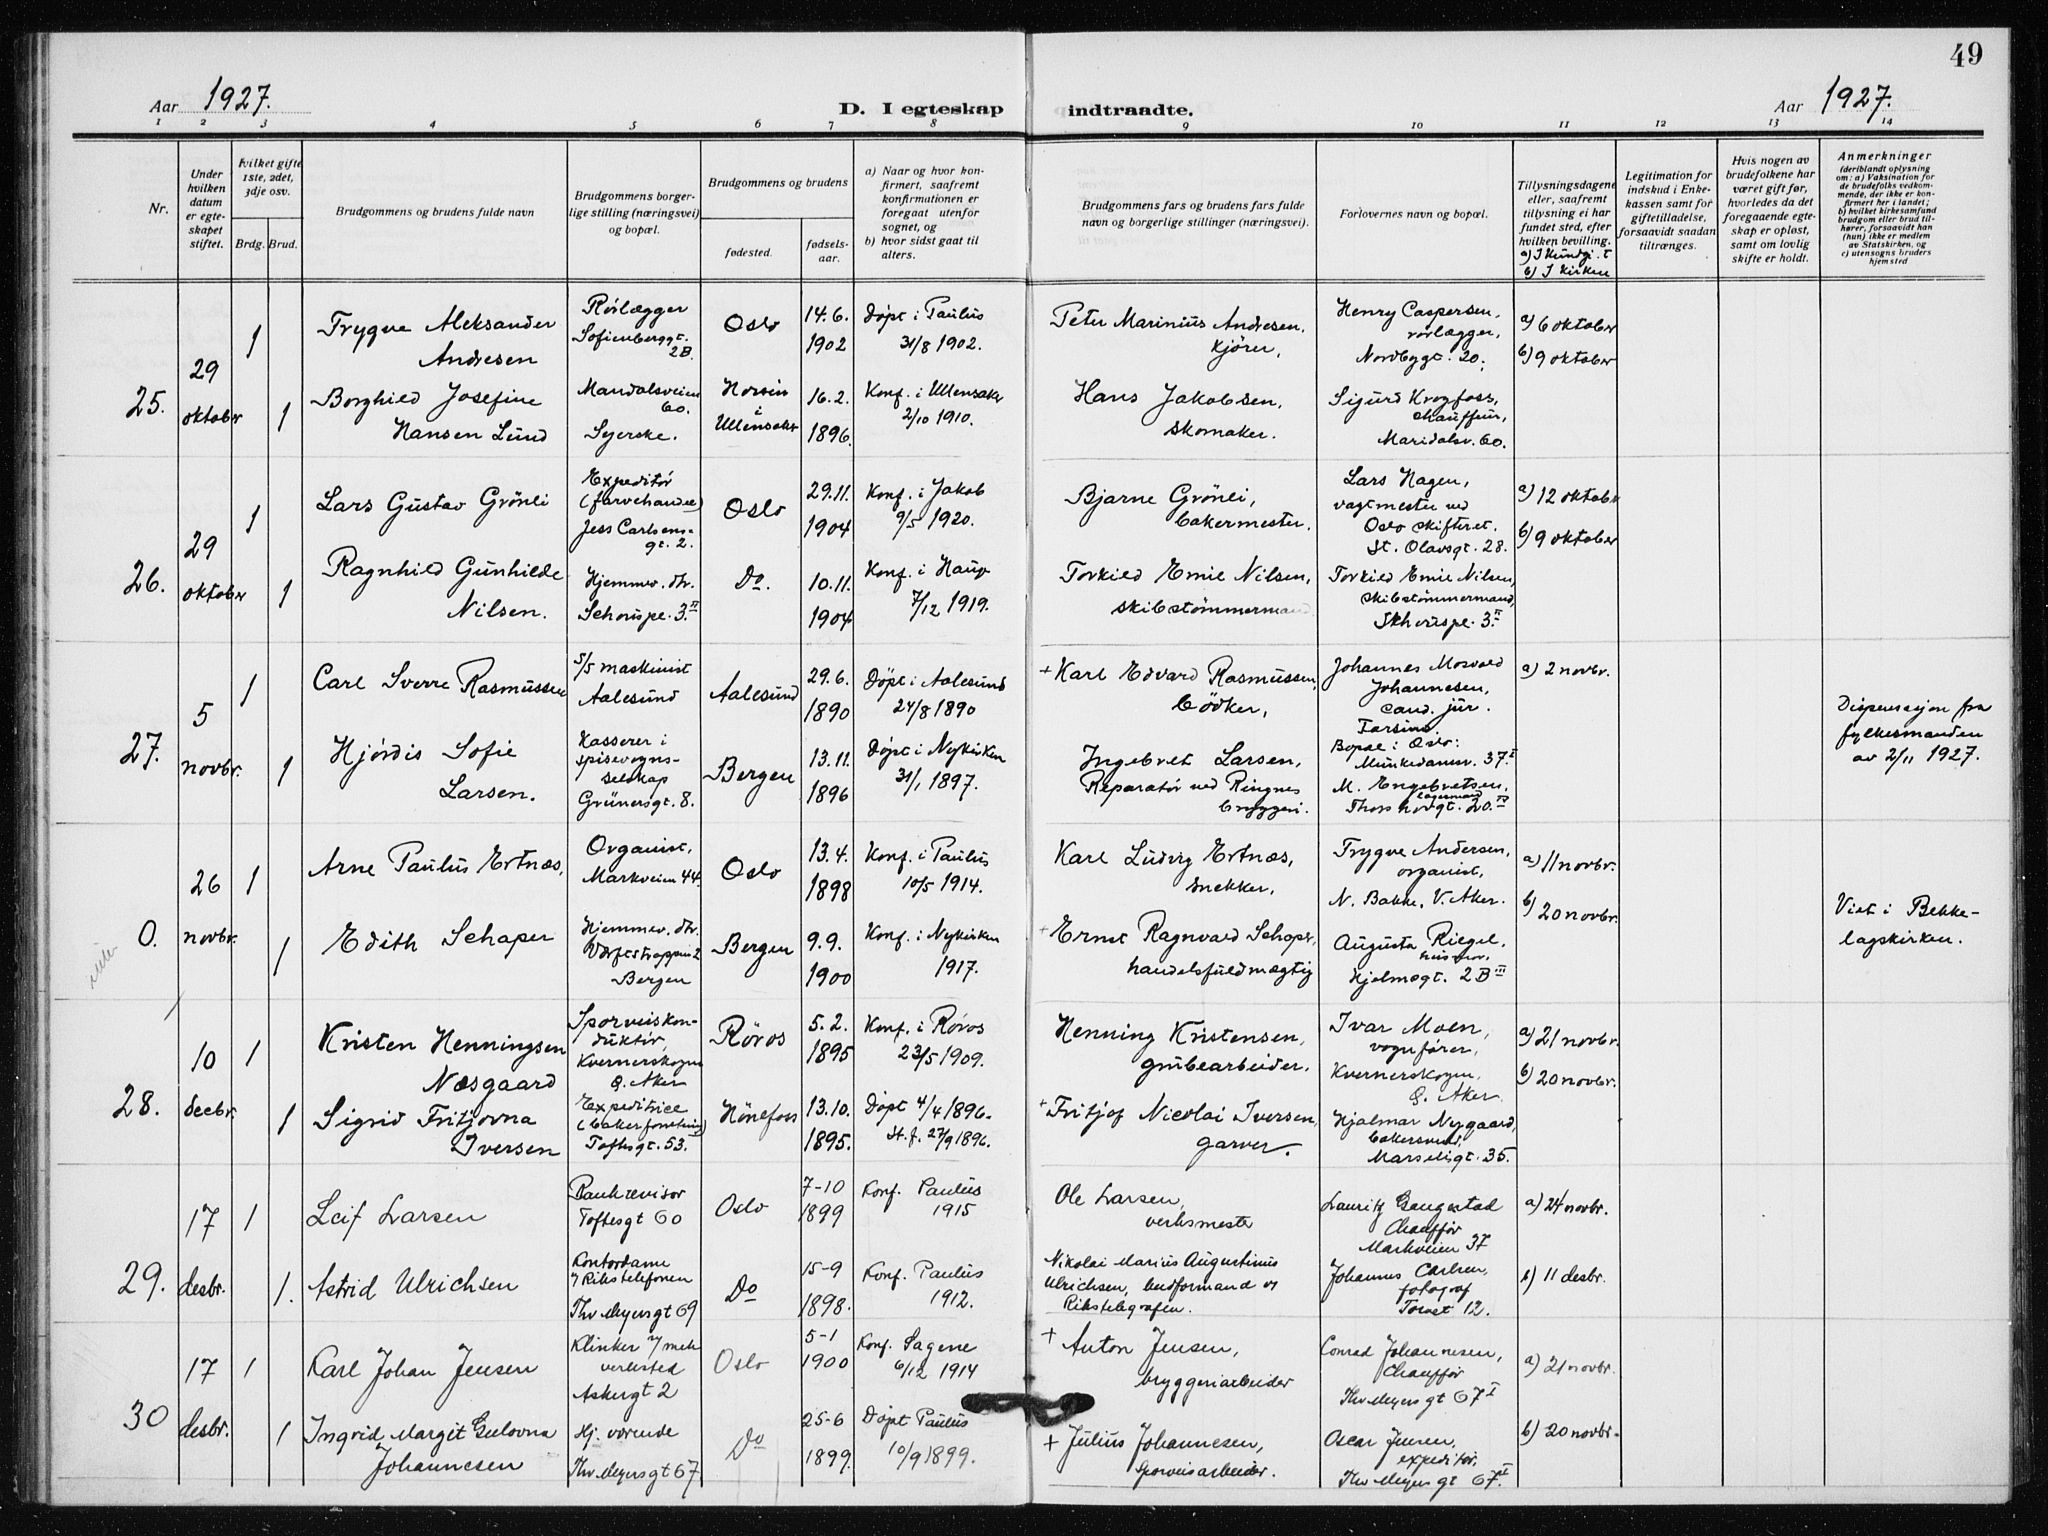 49
Aar 1927.
D. I egteskap indtraadte.
Aar 1927.
1 2 3 4 5 6 7 8 9 10 11 12 13 14
Nr.
Under hvilken datum er egteskapet stiftet.
Hvilket gifte 1ste, 2det, 3dje osv.
Brdg. Brud.
Brudgommens og brudens fulde navn
Brudgommens borgerlige stilling (næringsvei) og bopæl.
Brudgommens og brudens
fødested.
fødselsaar.
a) Naar og hvor konfirmert, saafremt konfirmationen er foregaat utenfor sognet, og
b) hvor sidst gaat til alters.
Brudgommens fars og brudens fars fulde navn og borgerlige stillinger (næringsvei).
Forlovernes navn og bopæl.
Tillysningsdagene eller, saafremt tillysning ei har fundet sted, efter hvilken bevilling.
b) I kirken
Legitimation for indskud i Enkekassen samt for giftetilladelse, forsaavidt saadan tiltrænges.
Hvis nogen av brudefolkene har været gift før, hvorledes da det foregaaende egteskap er opløst, samt om lovlig skifte er holdt.
Anmerkninger (deriblandt oplysning om: a) Vaksination for de brudefolks vedkommende, der ikke er konfirmert her i landet; b) hvilket kirkesamfund brudgom eller brud tilhører, forsaavidt han (hun) ikke er medlem av Statskirken, og c) utensogns bruders hjemsted
25. 29 oktober
1 Trygve Aleksander Andresen
Rørlægger Sofienberggt. 2B.
Oslo
14.6. 1902
Døpt i Paulus 31/8 1902.
Peter Marinius Andresen, kjører,
Henry Caspersen, rørlægger, Nordbygt. 20.
a) 6 oktober
b) 9 oktober
1 Borghild Josefine Hansen Lund
60. Syerske.
i Ullensaker
16.2. 1896.
Konf. i Ullensaker 2/10 1910.
Hans Jakobsen, skomaker.
Sigurd Krogfoss, chauffeur, Maridalsv. 60.
26. 29 oktober
1 Lars Gustav Grönli
Expeditør (farvehandel) Jess Carlsensgt. 2.
Oslo
29.11. 1904
Konf. i Jakob 9/5 1920.
Bjarne Grönli, bakermester.
Lars Hagen, vagtmester ved Oslo skifteret. St. Olavsgt. 28.
a) 12 oktober
b) 9 oktober
1 Ragnhild Gunhilde Nilsen.
Hjemmev. dtr. Schouspl. 3 II
Do.
10.11. 1904
Konf. i Haug 7/12 1919.
Torkild Emil Nilsen, skibstømmermand
Torkild Emil Nilsen, skibstømmermand, 3. II
27. 5 novbr.
1 Carl Sverre Rasmussen
S/S maskinist Aalesund
Aalesund
29.6. 1890
Døpt i Aalesund 24/8 1890
+ Karl Edvard Rasmussen, bödker,
Johannes Mosvold Johannesen, cand. jur. Farsund. Bopæl i Oslo: Munkedamsv. 37. I
a) 2 novbr.
Dispensasjon fra fylkesmanden av 2/11 1927.
1 Hjördis Sofie Larsen.
Kasserer i spisevognsselskap Grünersgt. 8.
Bergen
13.11. 1896
Døpt i Nykirken 31/1 1897.
Ingebret Larsen, Reparatør ved Ringnes bryggeri.
M. Engebretsen, lagermand Thorshovgt. 20. IV
0. 26 novbr.
1 Arne Paulus Ertnæs,
Organist, Markveien 44.
Oslo
13.4. 1898
Konf. i Paulus 10/5 1914.
Karl Ludvig Ertnæs, snekker,
Trygve Andersen, organist, N. Bakke, V. Aker.
a) 11 novbr.
b) 20 novbr.
Viet i Bekkelagskirken.
1 Edith Schaper
Hjemmev. dtr. Bergen
Bergen
9.9. 1900
Konf. i Nykirken 1917.
+ Ernst Ragnvald Schaper, handelsfuldmægtig
Augusta Riegel, husmor, Hjelmsgt. 2 B III
28. 10 decbr.
1 Kristen Henningsen Næsgaard
Sporveiskonduktør, Kvernerskogen Ö. Aker
Röros
5.2. 1895
Konf. i Røros 23/5 1909.
Henning Kristensen, grubearbeider.
Ivar Moen, vognfører, Kvernerskogen, Ö. Aker.
a) 21 novbr.
b) 20 novbr.
1 Sigrid Fritjovna Iversen
Expeditrice (bakerforretning) Toftesgt. 53.
Hönefoss
13.10. 1895.
Døpt 4/4 1896. 27/9 1896.
+ Fritjof Nicolai Iversen, garver.
Hjalmar Nygaard, bakersvend, Marselisgt. 35.
29. 17 desbr.
1 Leif Larsen
Bankrevisor Toftesgt 60
Oslo
7-10 1899
Konf. Paulus 1915
Ole Larsen, verksmester
Lauritz Gangestad Chauffør Markveien 37
a) 24 novbr.
b) 11 desbr.
1. Astrid Ulrichsen
Kontordame v/ Rikstelefonen Thv Meyersgt 69
Do
15-9 1898.
Konf. Paulus 1912.
Nikolai Marius Augustinus Ulrichsen, budformand v/ Rikstelegrafen.
Johannes Carlsen, fotograf Torvet 12.
30 17 desbr.
1 Karl Johan Jensen
Klinker v/ mek verksted Askergt 2
Oslo
5-1 1900
Konf. Sagene 6/12 1914
+ Anton Jensen, bryggeriarbeider
Conrad Johannesen, Chauffør Thv Meyers gt 67 I
a) 21 novbr.
b) 20 novbr.
1 Ingrid Margit Gulovna Johannesen
Hj. værende Thv Meyersgt 67
Do
25-6 1899.
Døpt Paulus 10/9 1899.
+ Julius Johannesen, Sporveisarbeider.
Oscar Jensen, expeditør, Thv Meyers gt 67. I